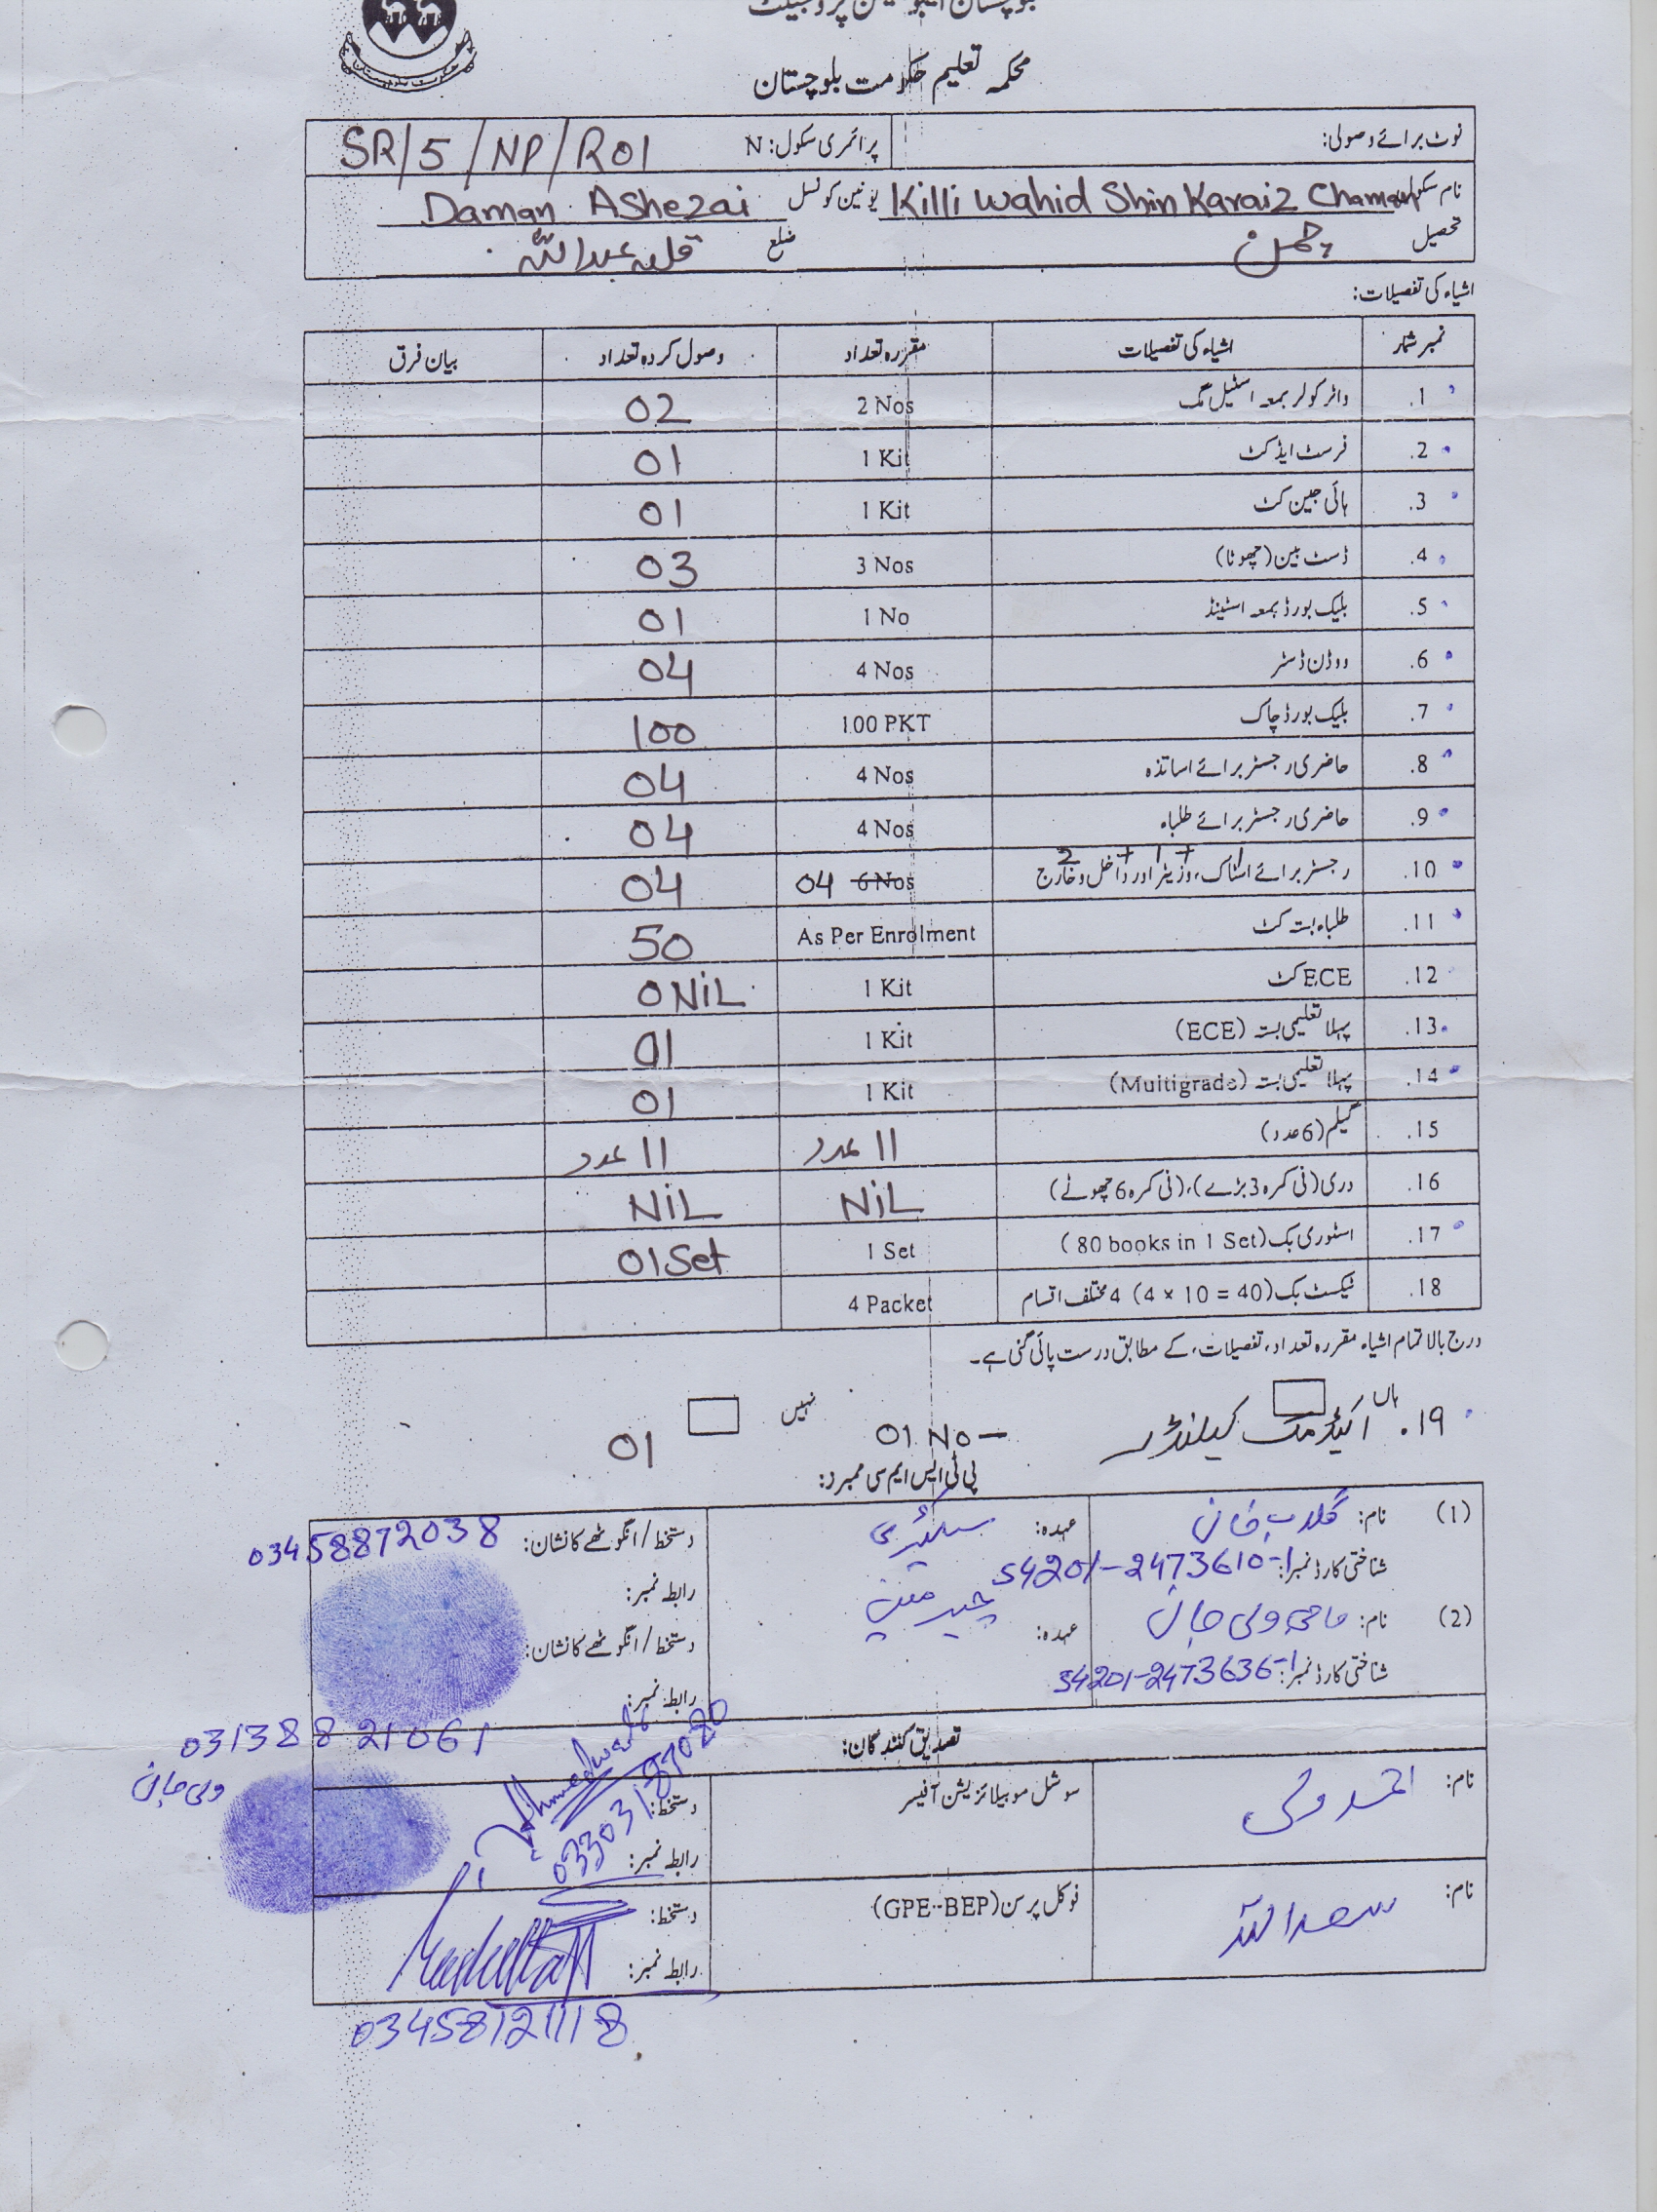 بلوچستان ایجوکیشن پروجیکٹ
محکمہ تعلیم حکومت بلوچستان
نوٹ برائے وصولی: پرائمری سکول: N SR/5/NP/R01
نام سکول Killi Wahid Shin Karaiz Chaman یونین کونسل Daman Ashezai
تحصیل چمن ضلع قلعہ عبداللہ
اشیاء کی تفصیلات:
نمبر شمار اشیاء کی تفصیلات مقررہ تعداد وصول کردہ تعداد بیان فرق
1. واٹر کولر بمعہ اسٹیل مگ 2 Nos 02
2. فرسٹ ایڈ کٹ 1 Kit 01
3. ہائی جین کٹ 1 Kit 01
4. ڈسٹ بین (چھوٹا) 3 Nos 03
5. بلیک بورڈ بمعہ اسٹینڈ 1 No 01
6. ووڈن ڈسٹر 4 Nos 04
7. بلیک بورڈ چاک 100 PKT 100
8. حاضری رجسٹر برائے اساتذہ 4 Nos 04
9. حاضری رجسٹر برائے طلباء 4 Nos 04
2 + 1 + 1
10. رجسٹر برائے اسٹاک، وزیٹر اور داخل و خارج 6 Nos 04 04
11. طلباء بستہ کٹ As Per Enrolment 50
12. ECE کٹ 1 Kit 0 NiL
13. پہلا تعلیمی بستہ (ECE) 1 Kit 01
14. پہلا تعلیمی بستہ (Multigrade) 1 Kit 01
15. گیلم (6 عدد) 11 عدد 11 عدد
16. دری (فی کمرہ 3 بڑے)، (فی کمرہ 6 چھوٹے) NiL NiL
17. اسٹوری بک (80 books in 1 Set) 1 Set 01 Set
18. ٹیکسٹ بک (4 × 10 = 40) 4 مختلف اقسام 4 Packet
درج بالا تمام اشیاء مقررہ تعداد، تفصیلات، کے مطابق درست پائی گئی ہے۔
ہاں نہیں
۱۹. اکیڈمک کیلنڈر 01 No - 01
پی ٹی ایس ایم سی ممبرز:
(1) نام: گلاب خان عہدہ: سیکٹری دستخط/انگوٹھے کا نشان: 03458872038
شناختی کارڈ نمبر: 54201-2473610-1 رابطہ نمبر:
(2) نام: حاجی ولی جان عہدہ: چیرمین دستخط/انگوٹھے کا نشان:
شناختی کارڈ نمبر: 54201-2473636-1 رابطہ نمبر:
03138821061
ولی جان
تصدیق کنندگان:
نام: احمد ولی سوشل موبیلائزیشن آفیسر دستخط: Ahmedwali
رابطہ نمبر: 03303187080
نام: سعد اللہ فوکل پرسن (GPE-BEP) دستخط:
رابطہ نمبر:
03458121118